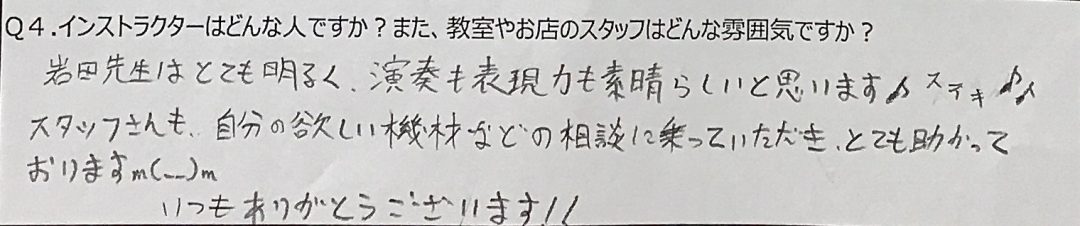 Q4.インストラクターはどんな人ですか？また、教室やお店のスタッフはどんな雰囲気ですか？
岩田先生はとても明るく、演奏も表現力も素晴らしいと思います♪ステキ♪♪
スタッフさんも、自分の欲しい機材などの相談に乗っていただき、とても助かって
おりますm(__)m
いつもありがとうございます!!